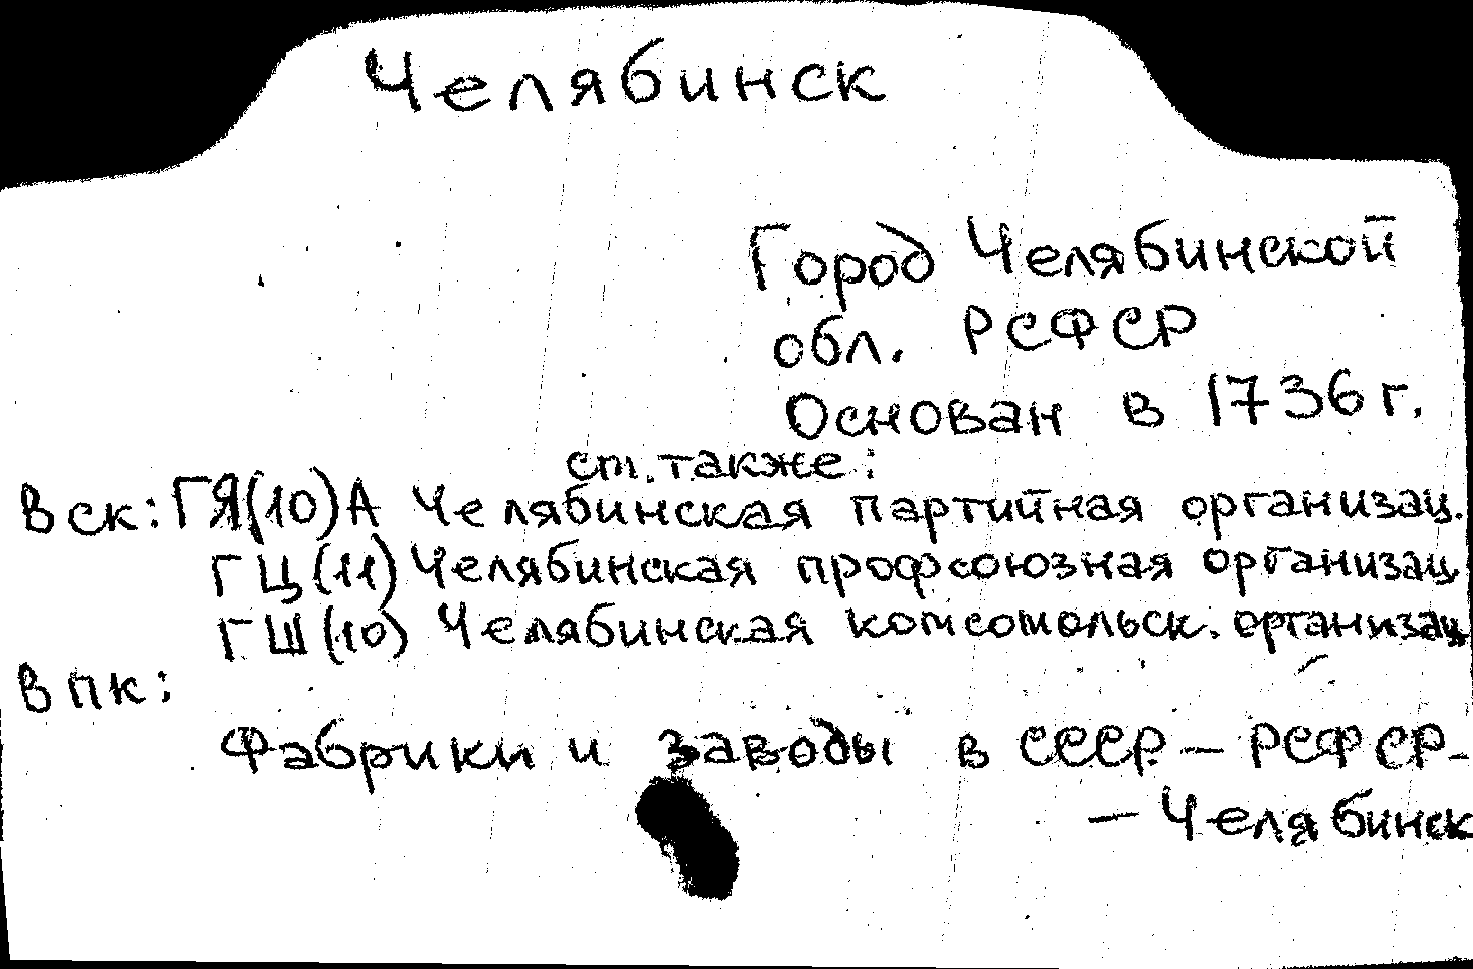 Челябинск
Город Челябинской
обл. РСФСР
Основан в 1736 г.
см. также:
В ск: ГЯ(10)А Челябинская партийная организац.
ГЦ(11) Челябинская профсоюзная организац
ГШ(10) Челябинская комсомольск. организац
В пк:
Фабрики и заводы в СССР – РСФСР –
– Челябинск